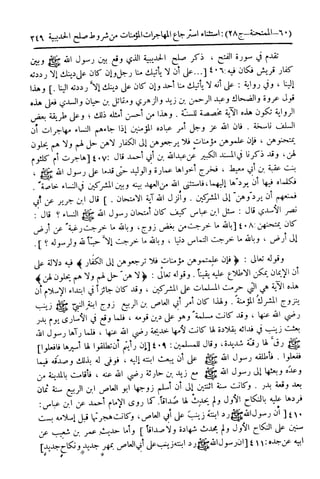 (٦٠-الممتحنة-ج٢٨): استثناء استرجاع المهاجرات المؤمنات من شروط صلح الحديبية ٣٤٩
تقدم في سورة الفتح ، ذكر صلح الحديبية الذي وقع بين رسول الله ﷺ وبين
كفار قريش فكان فيه ٤٠٦[... على أن لا يأتيك منا رجل وإن كان على دينك إلا رددته
إلينا ، وفي رواية : على أنه لا يأتيك منا أحد وإن كان على دينك إلا رددته إلينا .] وهذا
قول عروة والضحاك وعبد الرحمن بن زيد والزهري ومقاتل بن حيان والسدي فعلى هذه
الرواية تكون هذه الآية مخصصة للسنّة . وهذا من أحسن أمثلة ذلك ، وعلى طريقة بعض
السلف ناسخة . فان الله عز وجل أمر عباده المؤمنين إذا جاءهم النساء مهاجرات أن
يمتحنوهن ، فإن علموهن مؤمنات فلا يرجعوهن إلى الكفار لاهن حل لهم ولا هم يحلون
لهن ، وقد ذكرنا في المسند الكبير عن عبدالله بن أبي أحمد قال :٤٠٧[هاجرت أم كلثوم
بنت عقبة بن أبي معيط ، فخرج أخواها عمارة والوليد حتى قدما على رسول الله ﷺ ،
فكلماه فيها أن يردّها إليهما، فاستثنى الله من العهد بينه وبين المشركين في النساء خاصة.
فمنعهم أن يردوهن إلى المشركين . وأنزل الله آية الامتحان .] قال ابن جرير عن أبي
نصر الأسدي قال : سئل ابن عباس كيف كان امتحان رسول الله ﷺ النساء ؟ قال :
كان يمتحنهن :٤٠٨[بالله ما خرجت من بغض زوج ، وبالله ما خرجت رغبة عن أرض
إلى أرض ، وبالله ما خرجت التماس دنيا ، وبالله ما خرجت إلا حبّاً لله ولرسوله ؟].
وقوله تعالى : ﴿ فإن علمتموهن مؤمنات فلا ترجعوهن إلى الكفار ﴾ فيه دلالة على
أن الإيمان يمكن الاطلاع عليه يقيناً. وقوله تعالى: ﴿ لا هن حل لهم ولا هم يحلون لهن ﴾
هذه الآية هي التي حرمت المسلمات على المشركين ، وقد كان جائزاً في ابتداء الإسلام أن
يتزوج المشرك المؤمنة . ولهذا كان أمر أبي العاص بن الربيع زوج ابنة النبي ﷺ زينب
رضي الله عنها ، وقد كانت مسلمة وهو على دين قومه ، فلما وقع في الأسارى يوم بدر
بعثت زينب في فدائه بقلادة لها كانت لأمها خديجة رضي الله عنها ، فلما رآها رسول الله
ﷺ رقّ لها رقة شديدة، وقال للمسلمين: ٤٠٩[إن رأيتم أن تطلقوا لها أسيرها فافعلوا]
ففعلوا . فأطلقه رسول الله ﷺ على أن يبعث ابنته إليه ، فوفى له بذلك وصدقه فيما
وعده وبعثها إلى رسول الله ﷺ مع زيد بن حارثة رضي الله عنه ، فأقامت بالمدينة من
بعد وقعة بدر . وكانت سنة اثنتين إلى أن أسلم زوجها ابو العاص ابن الربيع سنة ثمان
فردها عليه بالنكاح الأول ولم يحدث لها صداقاً. كما روى الإمام أحمد عن ابن عباس:
٤١٠[ أن رسول الله ﷺ رد ابنته زينب على أبي العاص ، وكانت هجرتها قبل إسلامه بست
سنين على النكاح الأول ولم يحدث شهادة ولا صداقاً ] وأما حديث عمر بن شعيب عن
ابيه عن جده: ٤١١[ان رسول الله ﷺ رد ابنته زينب على أبي العاص بمهر جديد ونكاح جديد]